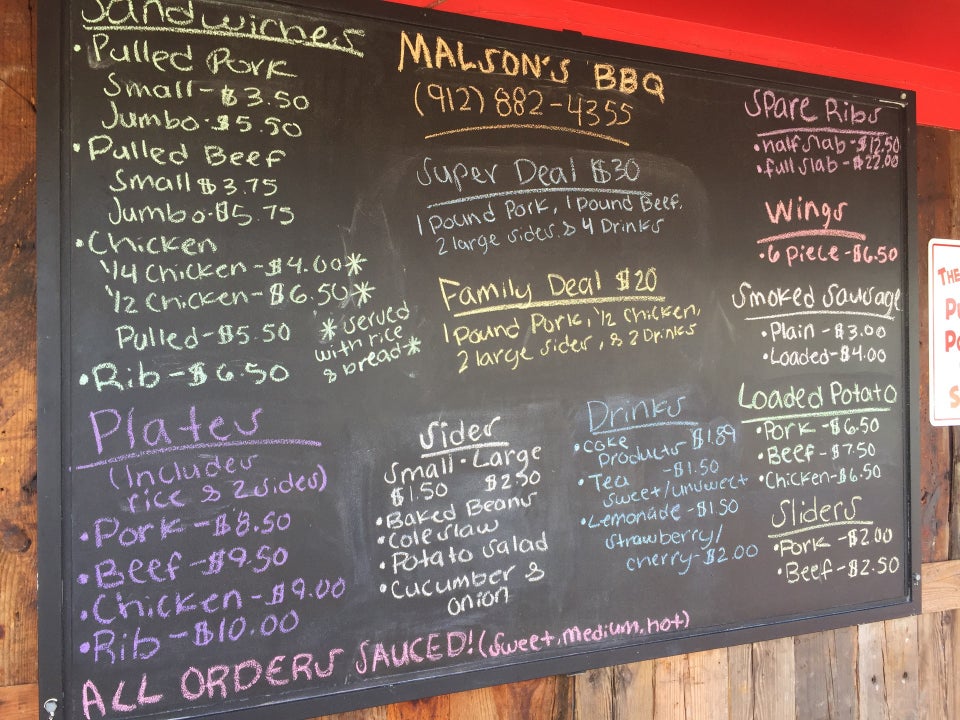 Sandwiches
• Pulled Pork
Small - $3.50
Jumbo - $5.50
• Pulled Beef
Small $3.75
Jumbo - $5.75
• Chicken
1/4 Chicken - $4.00*
1/2 Chicken - $6.50*
Pulled - $5.50
* served
with rice
& bread *
• Rib - $6.50
Plates
(Includes
rice & 2 sides)
• Pork - $8.50
• Beef - $9.50
• Chicken - $9.00
• Rib - $10.00
MALSON'S BBQ
(912) 882-4355
Super Deal $30
1 Pound Pork, 1 Pound Beef,
2 large sides & 4 Drinks
Family Deal $20
1 Pound Pork, 1/2 Chicken,
2 large sides, & 2 Drinks
Sides
Small • Large
$1.50 $2.50
• Baked Beans
• Coleslaw
• Potato Salad
• Cucumber &
onion
Drinks
• Coke
Products $1.89
• Tea - $1.50
sweet/unsweet
• Lemonade - $1.50
strawberry/
cherry - $2.00
Spare Ribs
• half slab - $12.50
• full slab - $22.00
Wings
• 6 piece - $6.50
Smoked Sausage
• Plain - $3.00
• Loaded - $4.00
Loaded Potato
• Pork - $6.50
• Beef - $7.50
• Chicken - $6.50
Sliders
• Pork - $2.00
• Beef - $2.50
ALL ORDERS SAUCED! (sweet, medium, hot)
THE